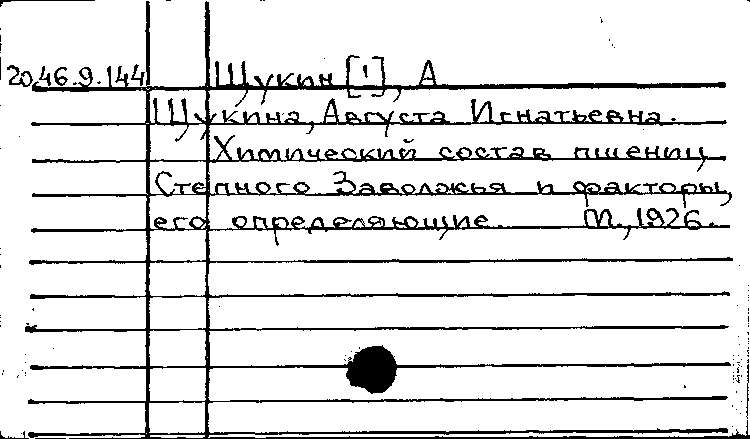 20.46.9.144 Щукин [!], А
Щукина, Августа Игнатьевна.
Химический состав пшениц
Степного Заволжья и факторы,
его определяющие. М., 1926.